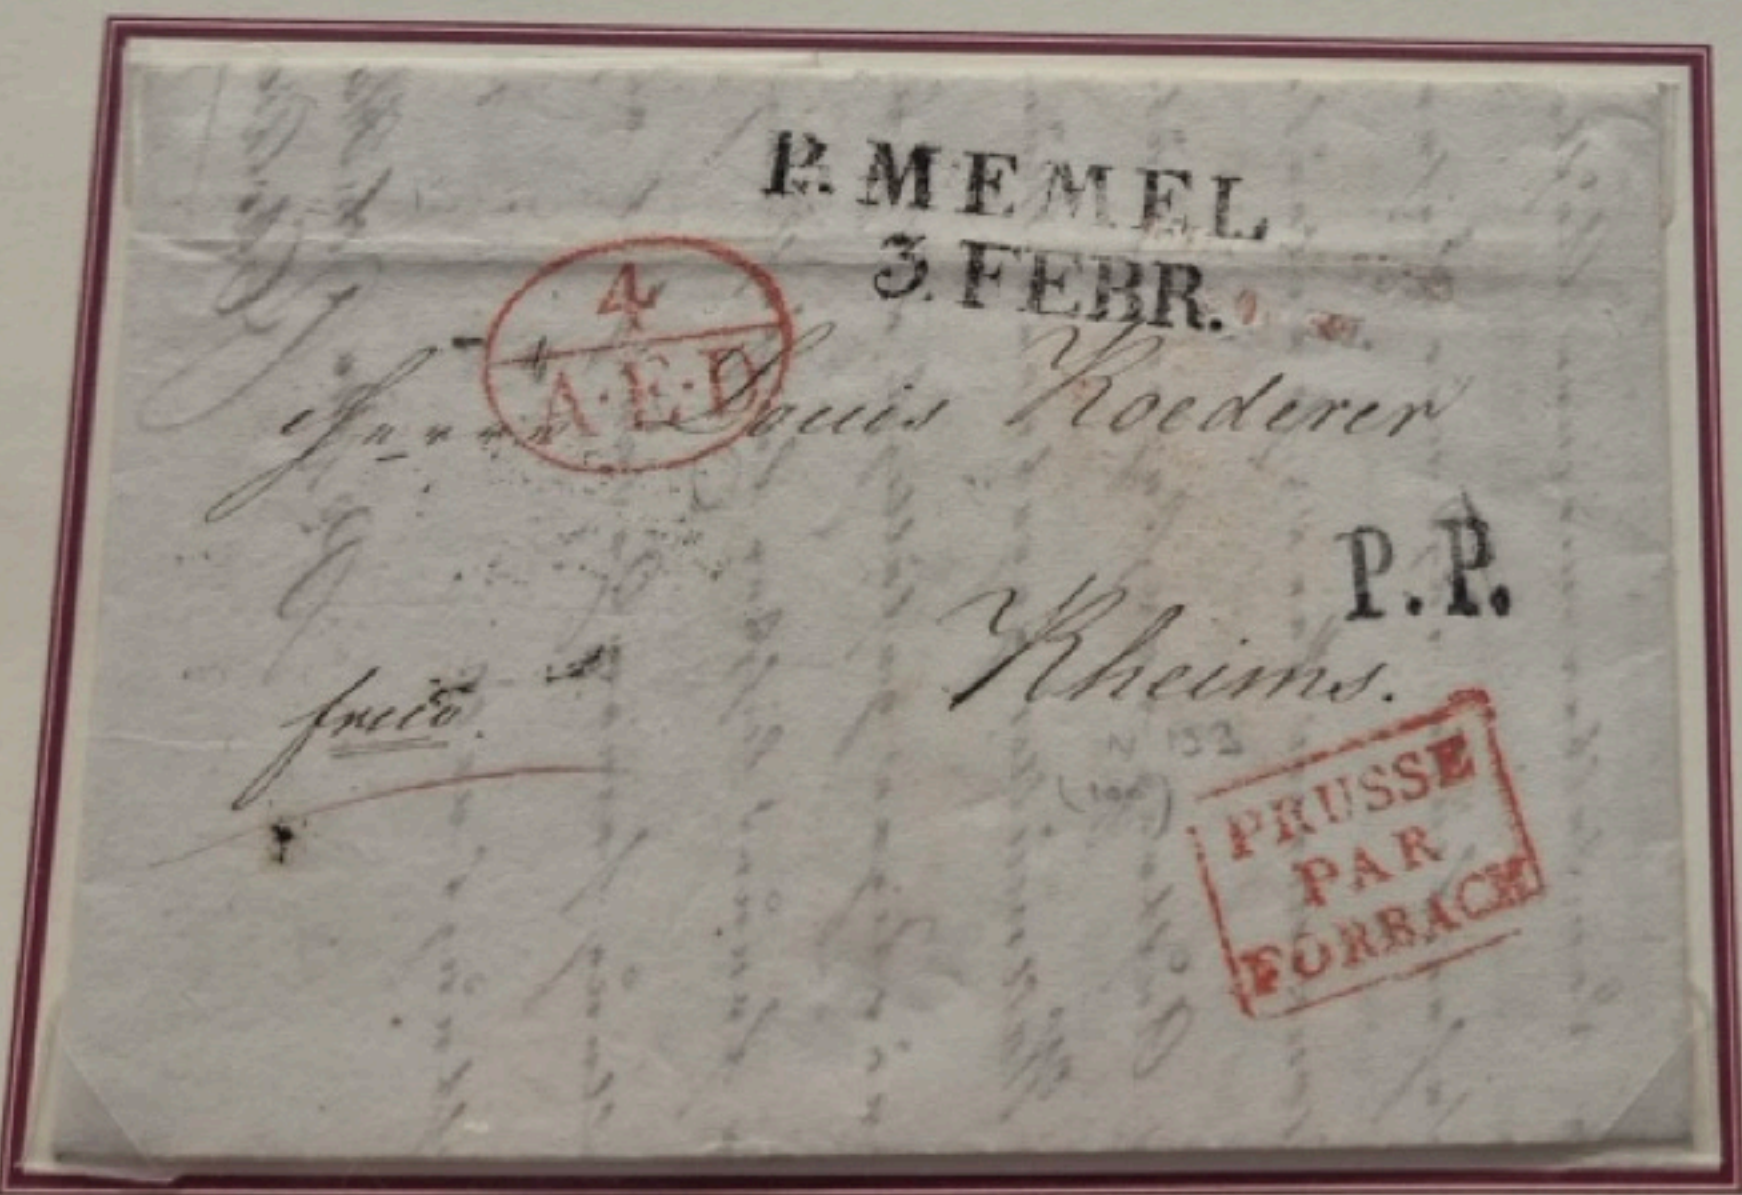 P. MEMEL
3. FEBR.
4
A.E.D
Herrn Louis Roederer
P.P.
Rheims.
franco.
N 193
(100)
PRUSSE
PAR
FORBACH